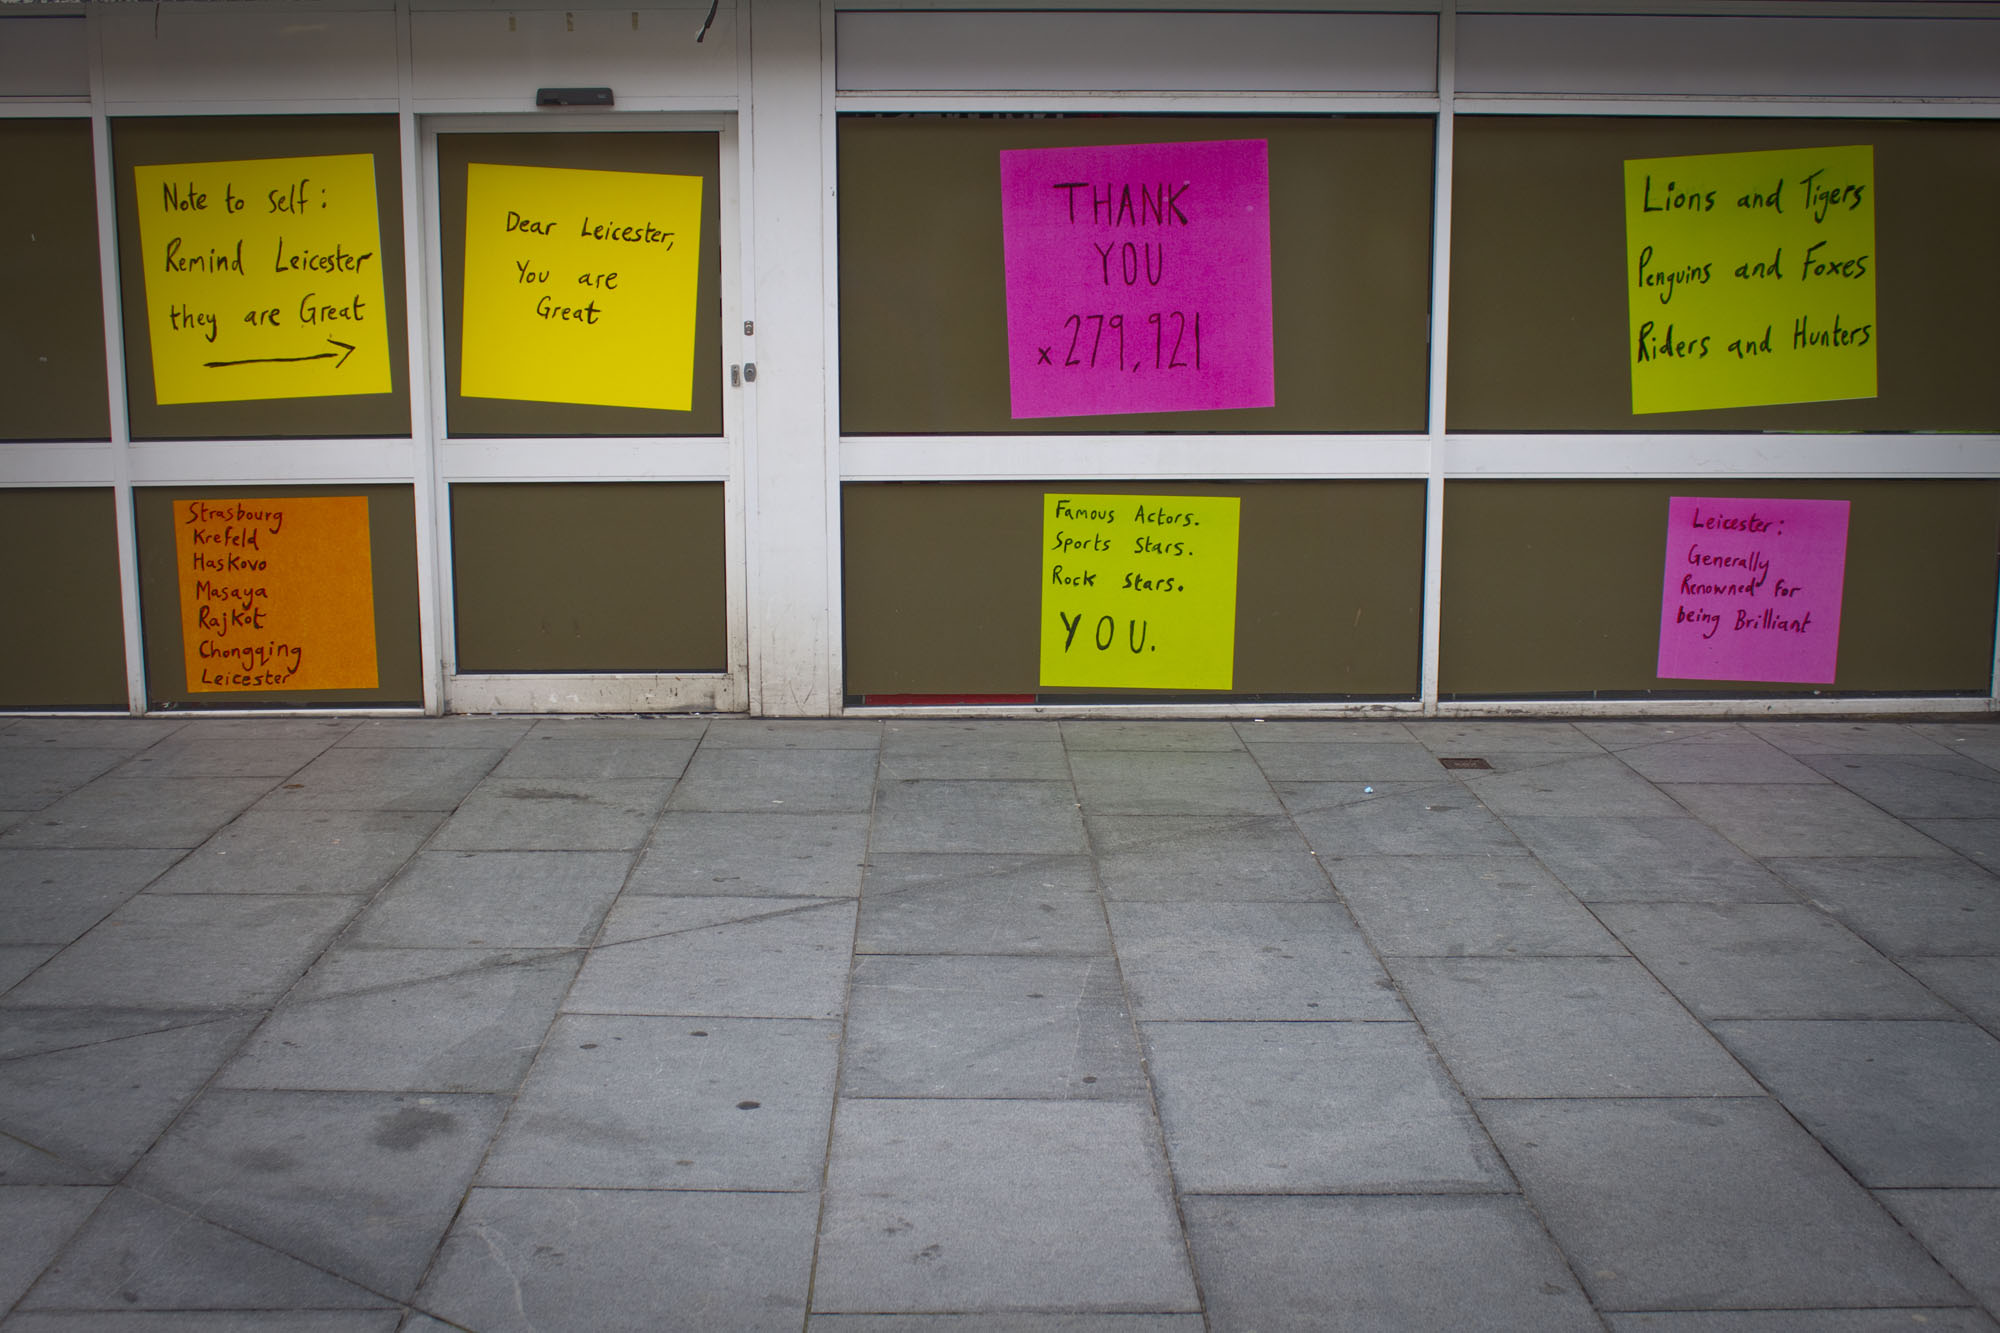 Note to self:
Remind Leicester
they are Great
Dear Leicester,
You are
Great
THANK
YOU
x 279,921
Lions and Tigers
Penguins and Foxes
Riders and Hunters
Strasbourg
Krefeld
Haskovo
Masaya
Rajkot
Chongqing
Leicester
Famous Actors.
Sports Stars.
Rock Stars.
YOU.
Leicester:
Generally
Renowned for
being Brilliant